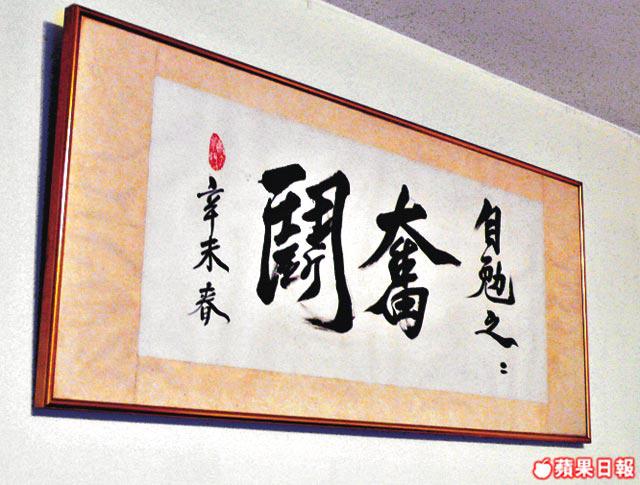 自勉之：
奮鬭
辛未春
蘋果日報